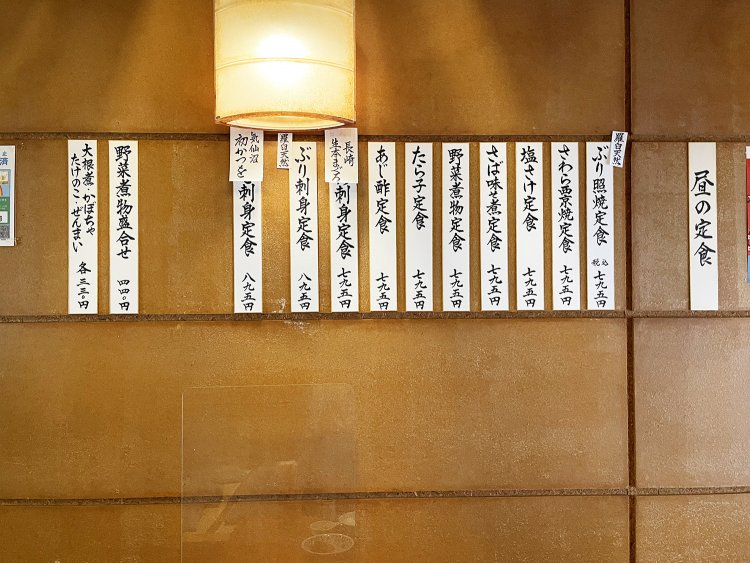 昼の定食
羅臼天然
ぶり照焼定食 税込 七九五円
さわら西京焼定食 七九五円
塩さけ定食 七九五円
さば味そ煮定食 七九五円
野菜煮物定食 七九五円
たら子定食 七九五円
あじ酢定食 七九五円
長崎
生本まぐろ
刺身定食 七九五円
羅臼天然
ぶり刺身定食 八九五円
気仙沼
初かつを
刺身定食 八九五円
野菜煮物盛合せ 四四〇円
大根煮・かぼちゃ
たけのこ・ぜんまい 各三三〇円